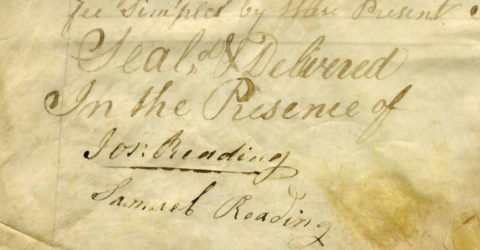 Fee Simples by these Present
Seal,d & Delivered
In the Presence of
Jos: Reading
Samuel Reading